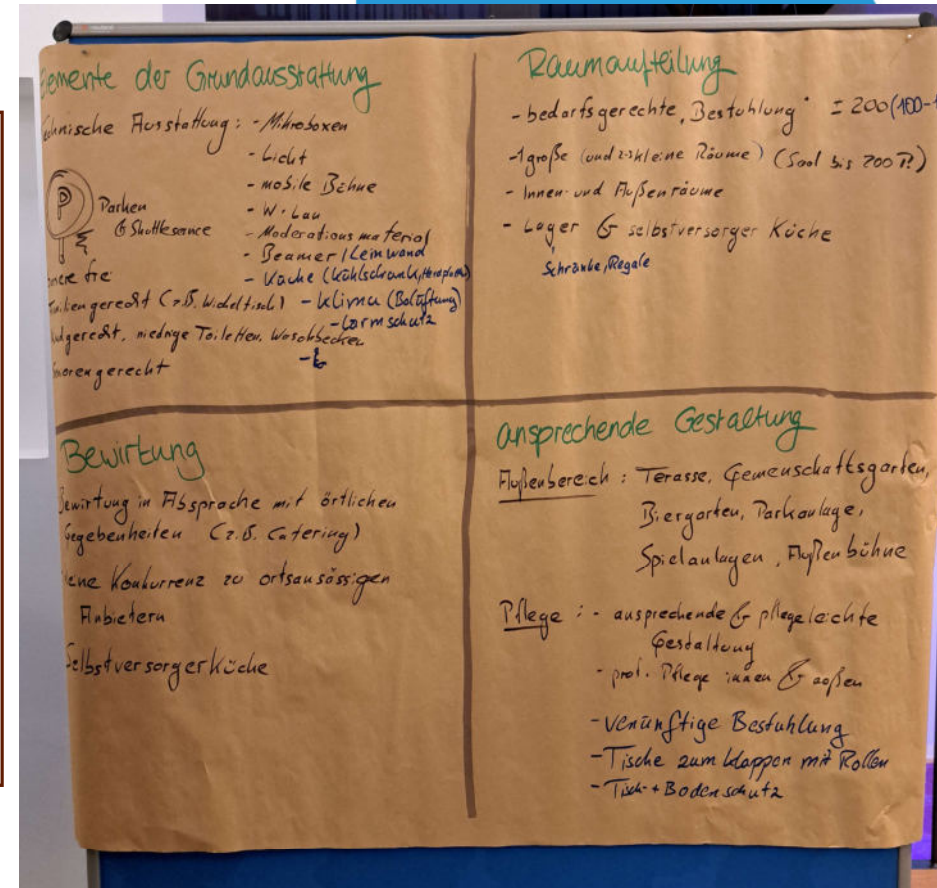 emente der Grundausstattung
chnische Ausstattung: - Mikroboxen
- Licht
- mobile Bühne
P Parken - W-Lan
& Shuttleservice - Moderationsmaterial
- Beamer/Leinwand
- Küche (Kühlschrank,
iere frei
iliengerecht (z.B. Wickeltisch) - Klima (Belüftung)
- Lärmschutz
dgerecht, niedrige Toiletten, Waschbecken
norengerecht
Raumaufteilung
- bedarfsgerechte "Bestuhlung" = 200 (100-1
- 1 große (und 2-3 kleine Räume) (Saal bis 200 P.)
- Innen- und Außenräume
- Lager & selbstversorger Küche
Schränke, Regale
Bewirtung
Bewirtung in Absprache mit örtlichen
Gegebenheiten (z.B. Catering)
eine Konkurrenz zu ortsansässigen
Anbietern
Selbstversorgerküche
ansprechende Gestaltung
Außenbereich: Terasse, Gemenschaftsgarten,
Biergarten, Parkanlage,
Spielanlagen, Außenbühne
Pflege: - ansprechende & pflegeleichte
Gestaltung
- prof. Pflege innen & außen
- venünftige Bestuhlung
- Tische zum klappen mit Rollen
- Tisch- + Bodenschutz